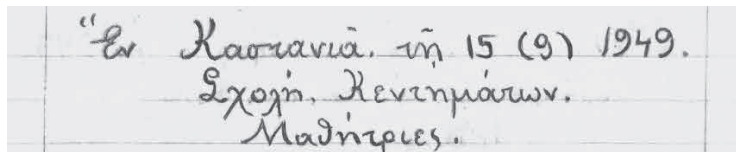 "Ἐν Καστανιᾷ, τῇ 15 (9) 1949.
Σχολή, Κεντημάτων.
Μαθήτριες.